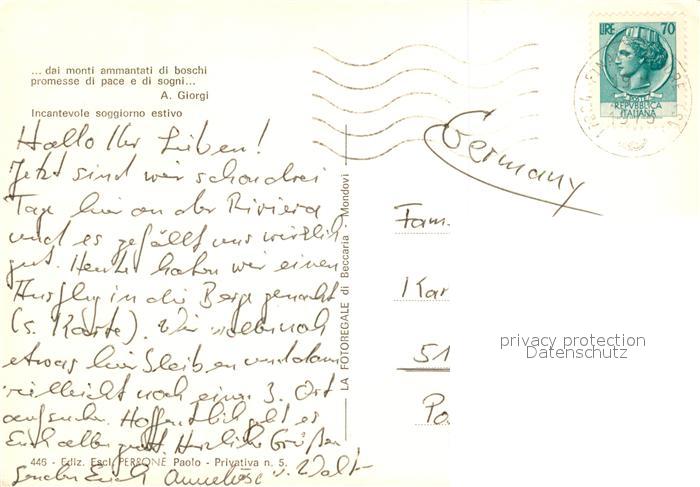 ... dai monti ammantati di boschi
promesse di pace e di sogni...
A. Giorgi
Incantevole soggiorno estivo
Hallo Ihr Lieben!
Jetzt sind wir schon drei
Tage hier an der Riviera
und es gefällt uns wirklich
gut. Heute haben wir einen
Ausflug in die Berge gemacht
(s. Karte). Wir wollen noch
etwas hier bleiben und dann
vielleicht noch einen 3. Ort
aufsuchen. Hoffentlich geht es
Euch allen gut. Herzliche Grüße
senden Euch Anneliese u. Walt
446 - Ediz. Escl. PERRONE Paolo - Privativa n. 5.
LA FOTOREGALE di Beccaria - Mondovì
LIRE 70
POSTE
REPVBBLICA
ITALIANA
Germany
Fam.
Kar
51
Po
privacy protection
Datenschutz